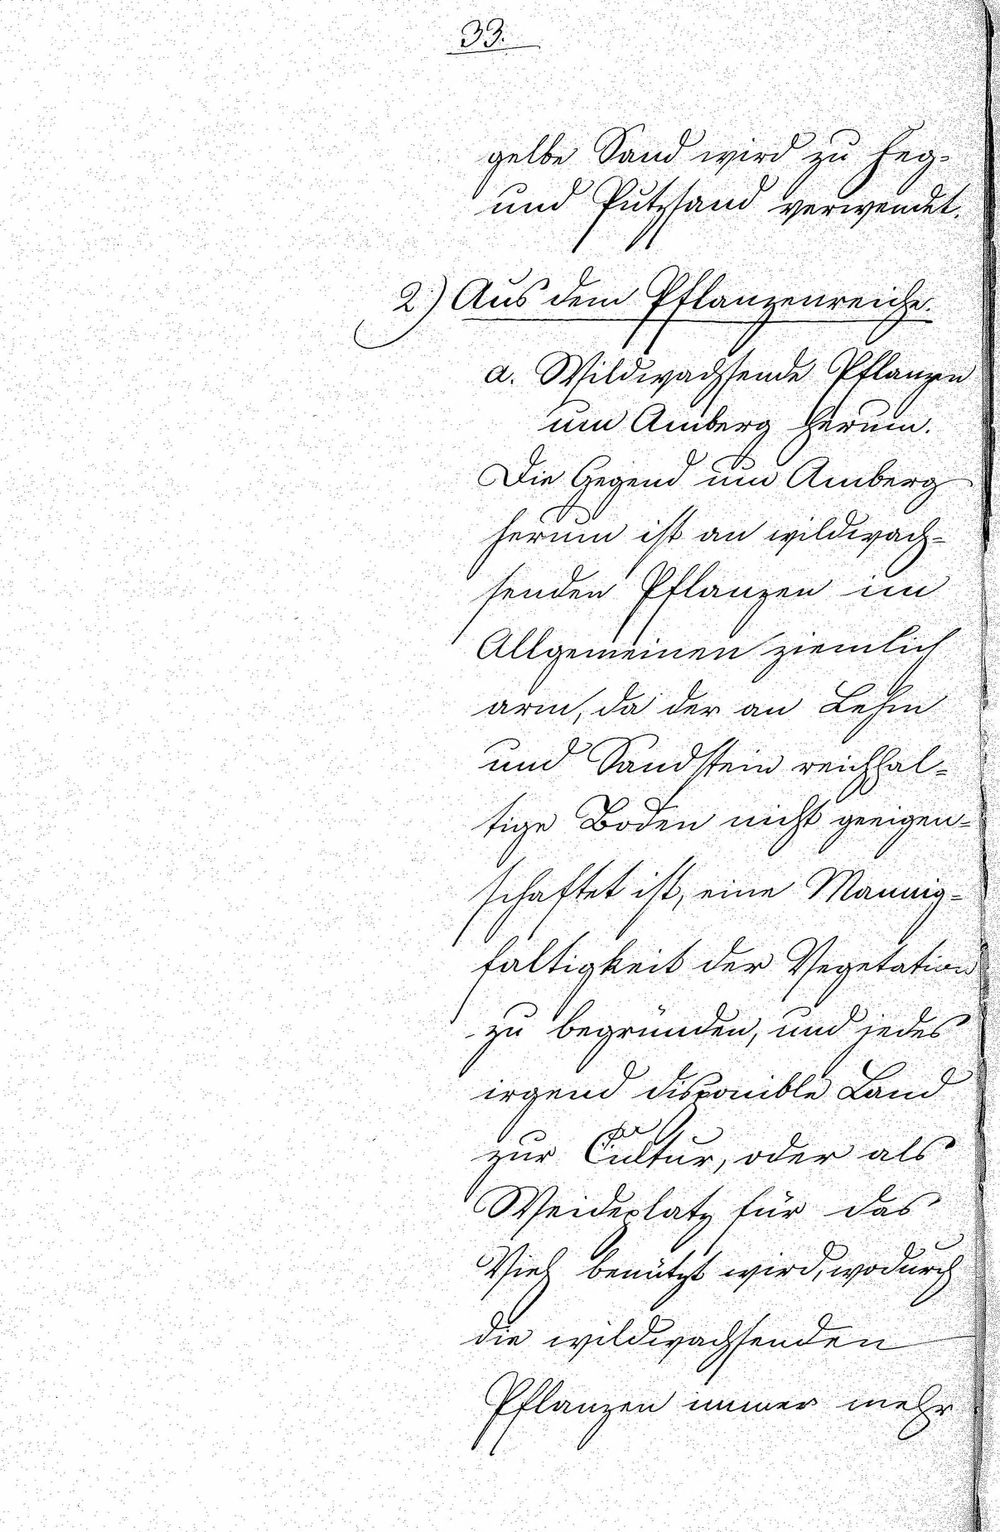 33.
gelbe Sand wird zu Feg-
und Putzsand verwendet.
2.) Aus dem Pflanzenreiche.
a. Wildwachsende Pflanzen
um Amberg herum.
Die Gegend um Amberg
herum ist an wildwach-
senden Pflanzen im
Allgemeinen ziemlich
arm, da der an Lehm
und Sandstein reichhal-
tige Boden nicht geeigen-
schaftet ist, eine Mannig-
faltigkeit der Vegetation
zu begründen, und jedes
irgend disponible Land
zur Cultur, oder als
Weideplatz für das
Vieh benützt wird, wodurch
die wildwachsenden
Pflanzen immer mehr